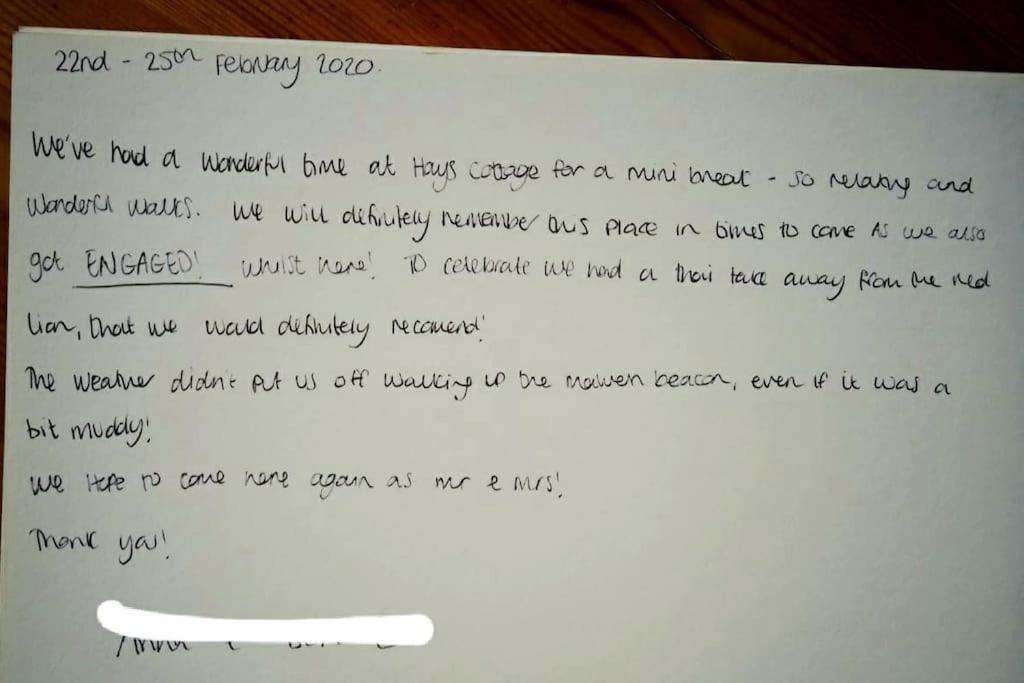 22nd - 25th February 2020.
We've had a wonderful time at Hays Cottage for a mini break - so relaxing and
wonderful walks. We will definitely remember this place in times to come as we also
got ENGAGED! whilst here! To celebrate we had a thai take away from the red
lion, that we would definitely recomend!
The weather didn't put us off walking up the malvern beacon, even if it was a
bit muddy!
We hope to come here again as mr & mrs!
Thank you!